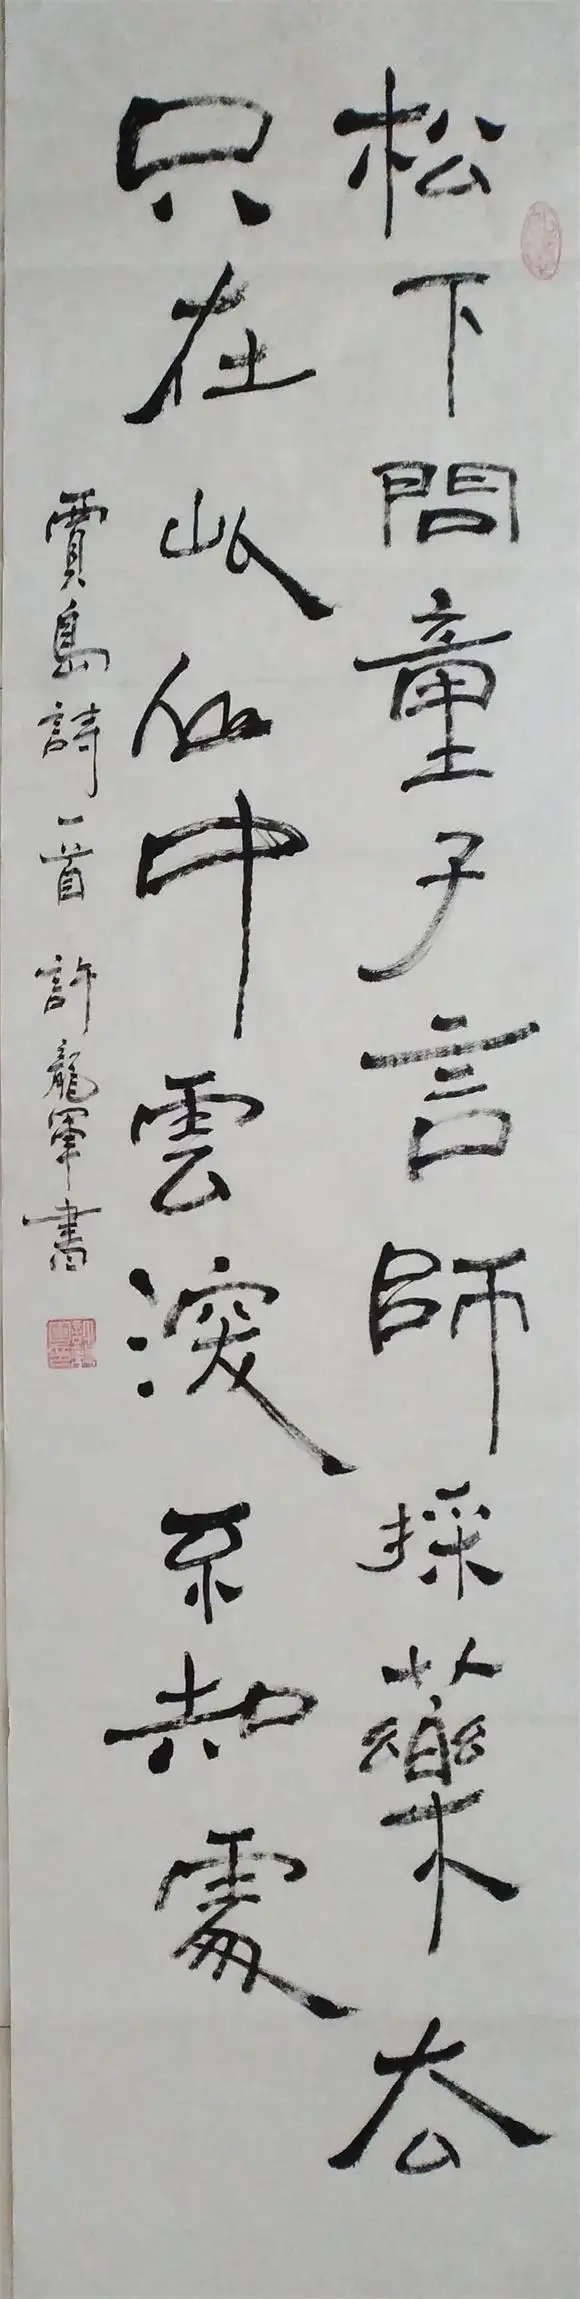 松下問童子言師採藥去
只在此山中雲深不知處
賈島詩一首 許龍軍書